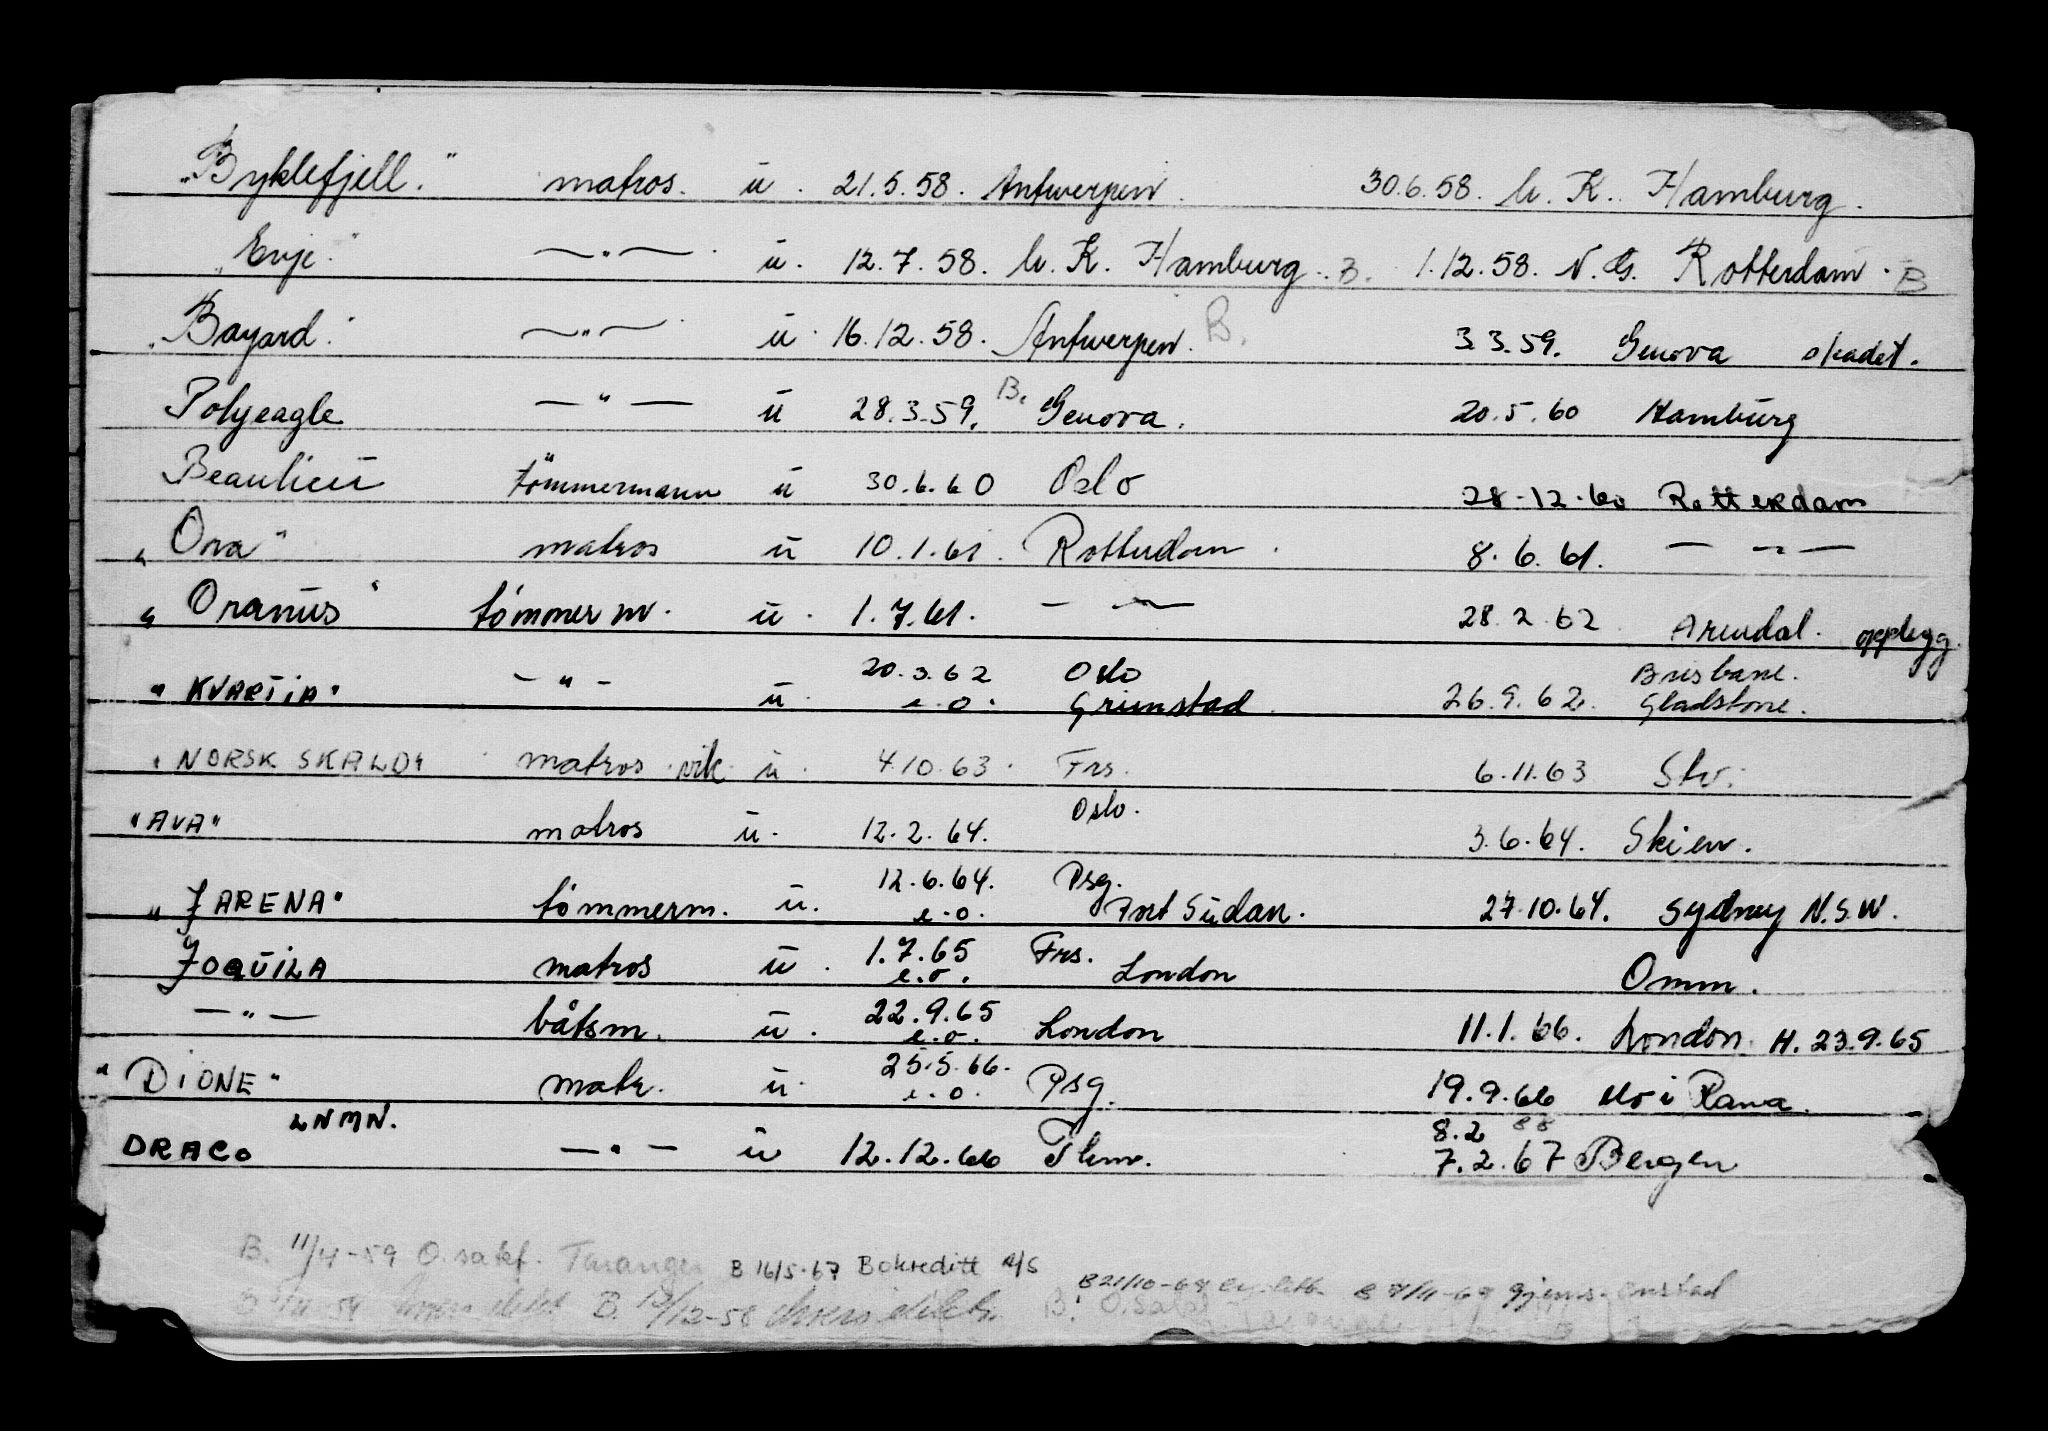 "Byklefjell." matros. u. 21.5.58. Antwerpen. 30.6.58. h. K. Hamburg.
"Evje." —"— u. 12.7.58. h. K. Hamburg. B. 1.12.58. N. G. Rotterdam. B
"Bayard." —"— u. 16.12.58. Antwerpen. B. 3.3.59. Genova skadet.
Polyeagle —"— u 28.3.59. B. Genova. 20.5.60 Hamburg
Beaulieu tömmermann u 30.6.60 Oslo 28-12-60 Rotterdam
"Ora" matros u 10.1.61. Rotterdam. 8.6.61. —"—
"Oranus" tömmerm. u. 1.7.61. —"— 28.2.62 Arendal. opplegg.
20.3.62 Oslo Brisbane.
"KVARTIA" —"— u. e.o. Grimstad. 26.9.62. Gladstone.
"NORSK SKALD" matros vik. u. 4.10.63. Frs. 6.11.63 Stv.
Oslo.
"AVA" matros u. 12.2.64. 3.6.64. Skien.
12.6.64. Psg.
"JARENA" tömmerm. u. e.o. Port Sudan. 27.10.64. Sydney N.S.W.
1.7.65 Frs.
JOQUILA matros u. e.o. London Omm.
22.9.65
—"— båtsm. u. e.o. London 11.1.66. London. H. 23.9.65
25.5.66.
"DIONE" matr. u. e.o. Psg. 19.9.66 Mo i Rana.
LNMN. 8.2
DRACO —"— u 12.12.66 Thm. 7.2.67 Bergen
B. 11/4-59 O. satef. Taranger B 16/5-67 Bokreditt A/S
B 21/10-67 B 7/11-67 gjens. Onstad
B. 12/12-58 B.